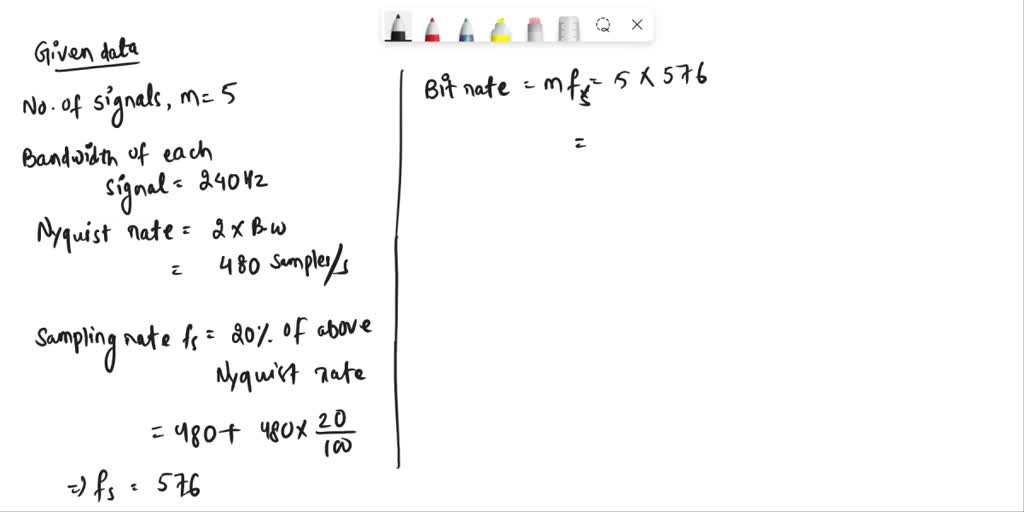 Given data
No. of signals, m= 5
Bandwidth of each
signal = 240Hz
Nyquist rate = 2 × B·W
= 480 Samples/s
Sampling rate fs = 20% of above
Nyquist rate
= 480+ 480× 20/100
=) fs = 576
Bit rate = m fs = 5 × 576
=